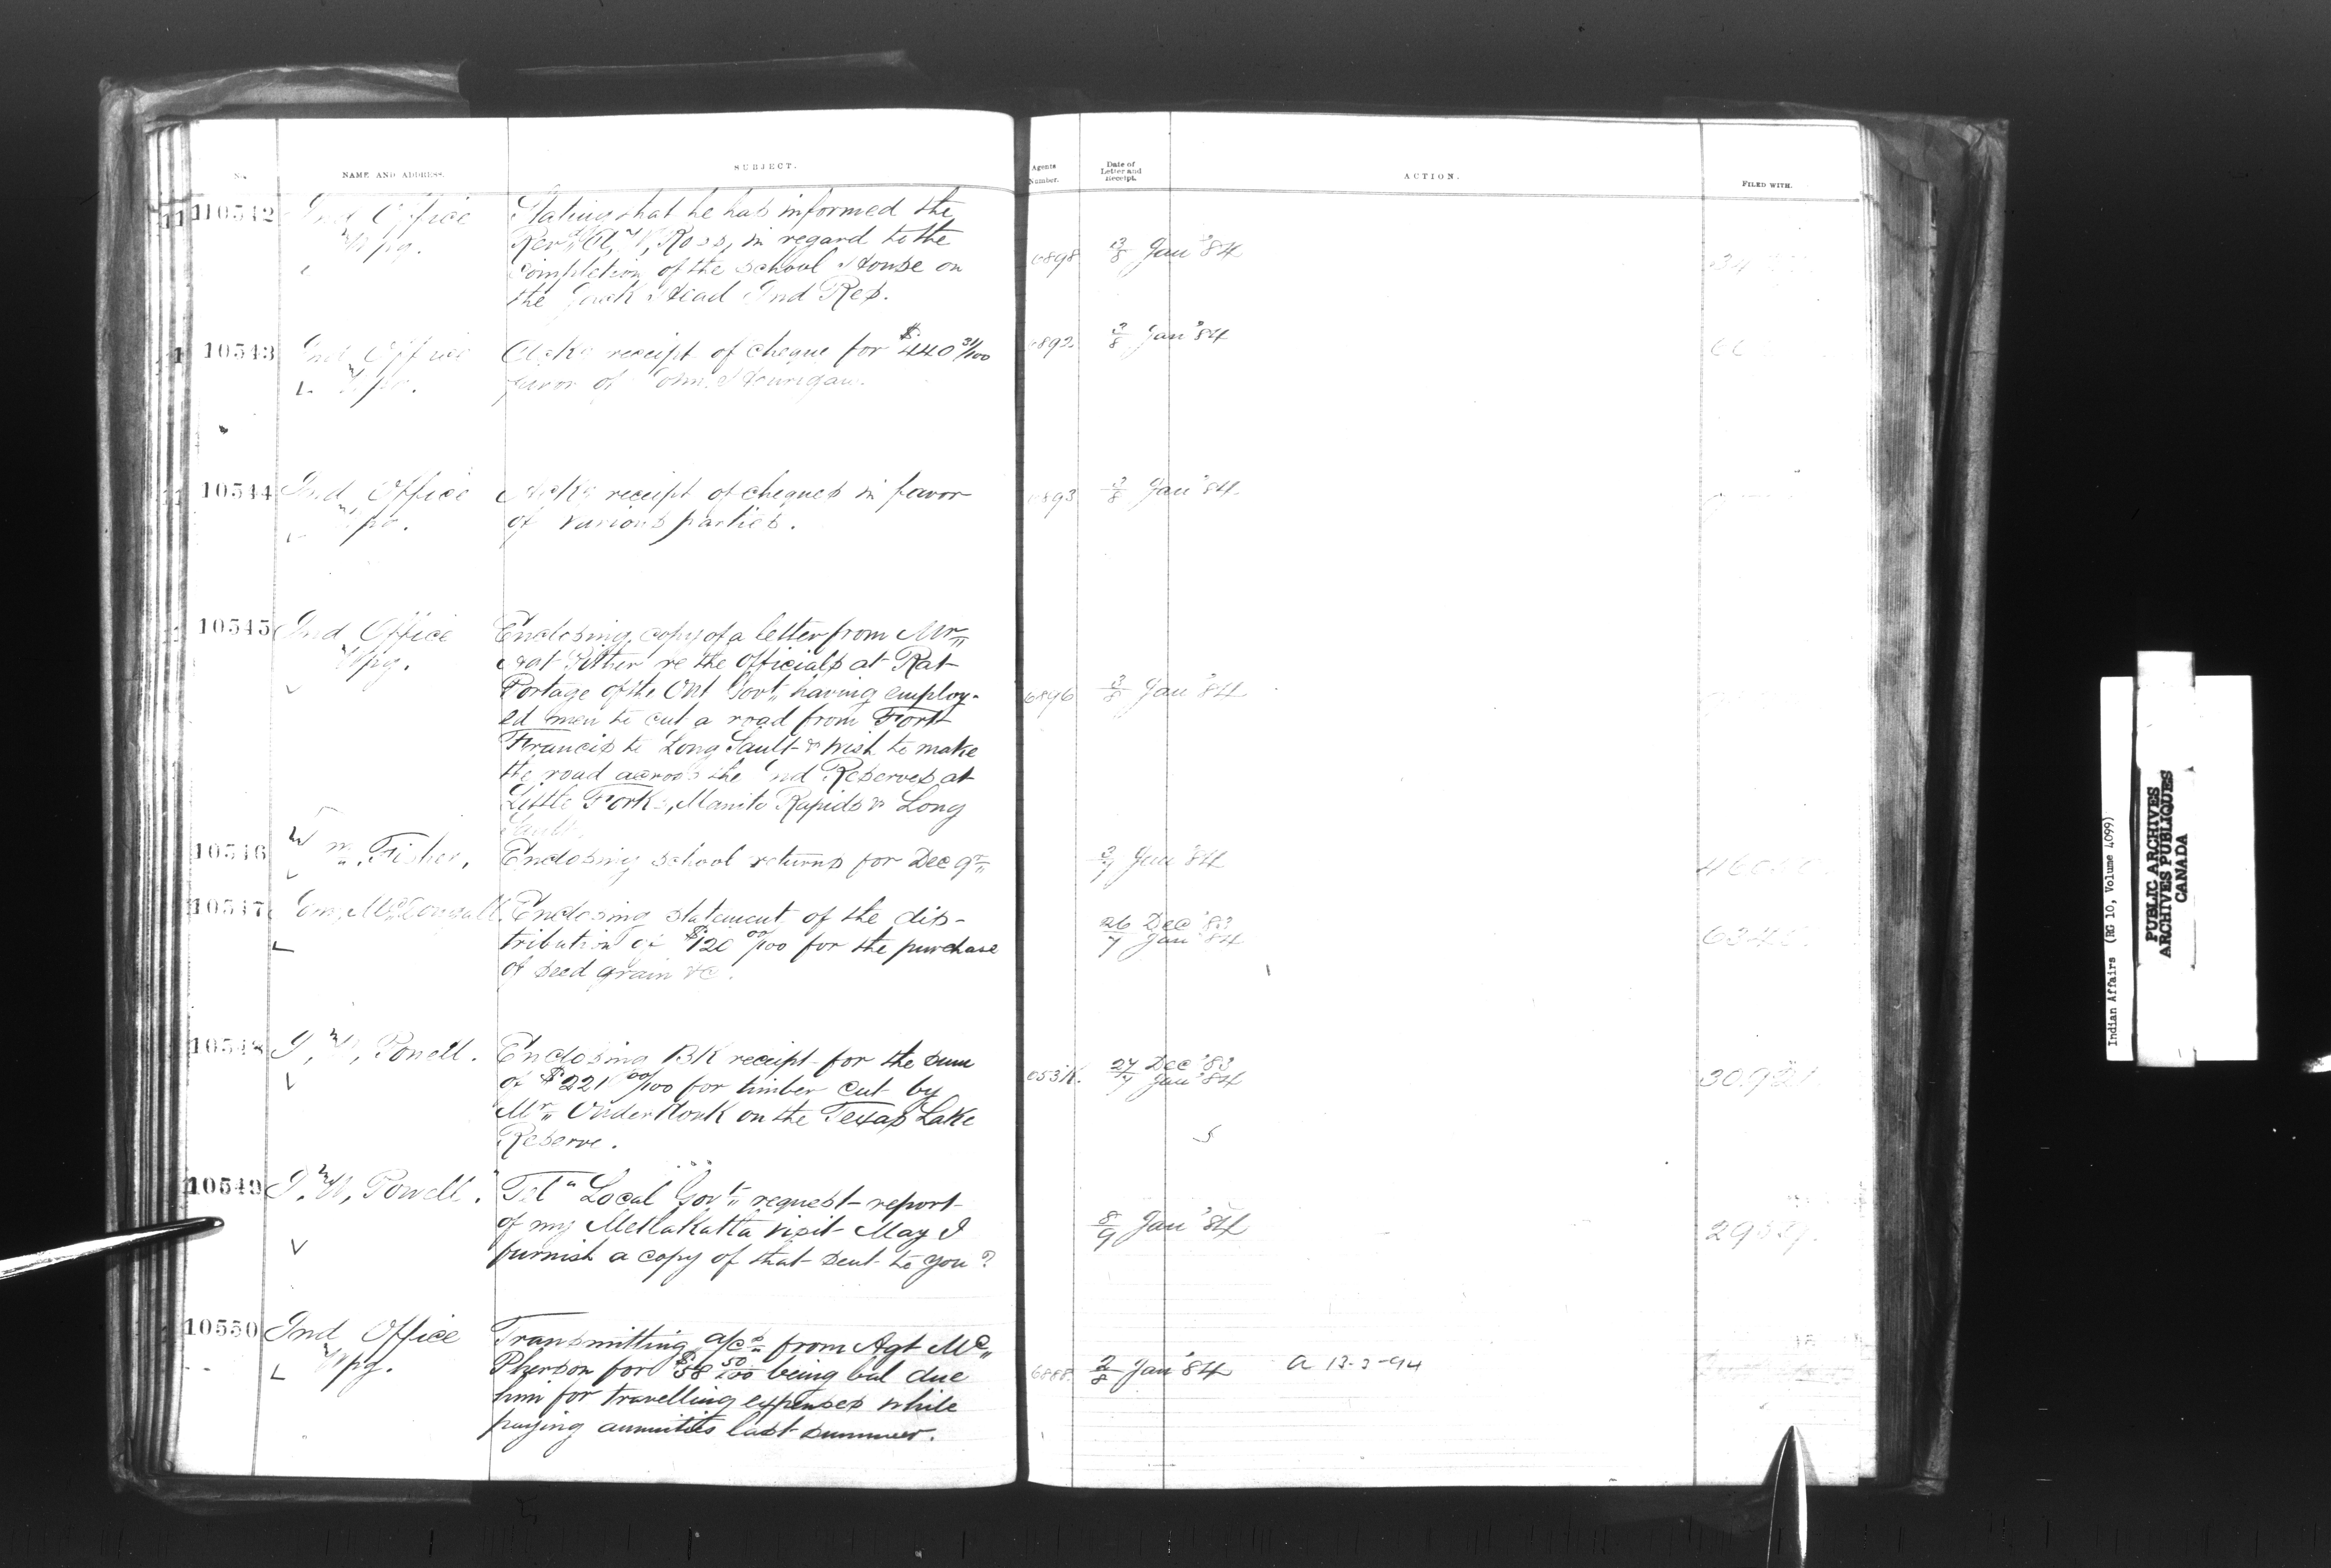 No. NAME AND ADDRESS. SUBJECT. Agents Number. Date of Letter and Receipt. ACTION. FILED WITH.
10542 Ind Office Stating that he has informed the
Wpg. Revd A, W, Ross, in regard to the
completion of the school House on 6898 3/8 Jan '84
the Jack Head Ind Res.
10543 Ind Office Ackg receipt of cheque for $440 31/100 6892 3/8 Jan '84
Wpg. favor of John
10544 Ind Office Ackg receipt of cheques in favor 6893 3/8 Jan '84
Wpg. of various parties.
10545 Ind Office Enclosing copy of a letter from Mr
Wpg. Pither re the Officials at Rat
Portage of the Ont Govt, having employ- 6896 3/8 Jan '84
ed men to cut a road from Fort
Francis to Long Sault & wish to make
the road across the Ind Reserves at
Little Forks, Manito Rapids & Long
Sault.
10546 Wm Fisher, Enclosing school returns for Dec qr 3/7 Jan '84
10547 McDougall Enclosing statement of the dis- 26 Dec '83
tribution of $120 00/100 for the purchase 7 Jan '84
of seed grain &c.
10548 I, W, Powell. Enclosing BK receipt for the sum 27 Dec '83
of $221 00/100 for timber cut by 7 Jan '84
Mr OnderKonk on the Texas Lake
Reserve.
10549 I, W, Powell. Tel" Local Govt request report
of my Metlakatta visit May I 8/9 Jan '84
furnish a copy of that sent to you?
10550 Ind Office Transmitting a/cs from Agt Mc
Wpg. Pherson for $58 50/100 being bal due 6888 2/8 Jan '84 a 13-3-94
him for travelling expenses while
paying annuities last summer.
Indian Affairs (RG 10, Volume 4099)
PUBLIC ARCHIVES
ARCHIVES PUBLIQUES
CANADA